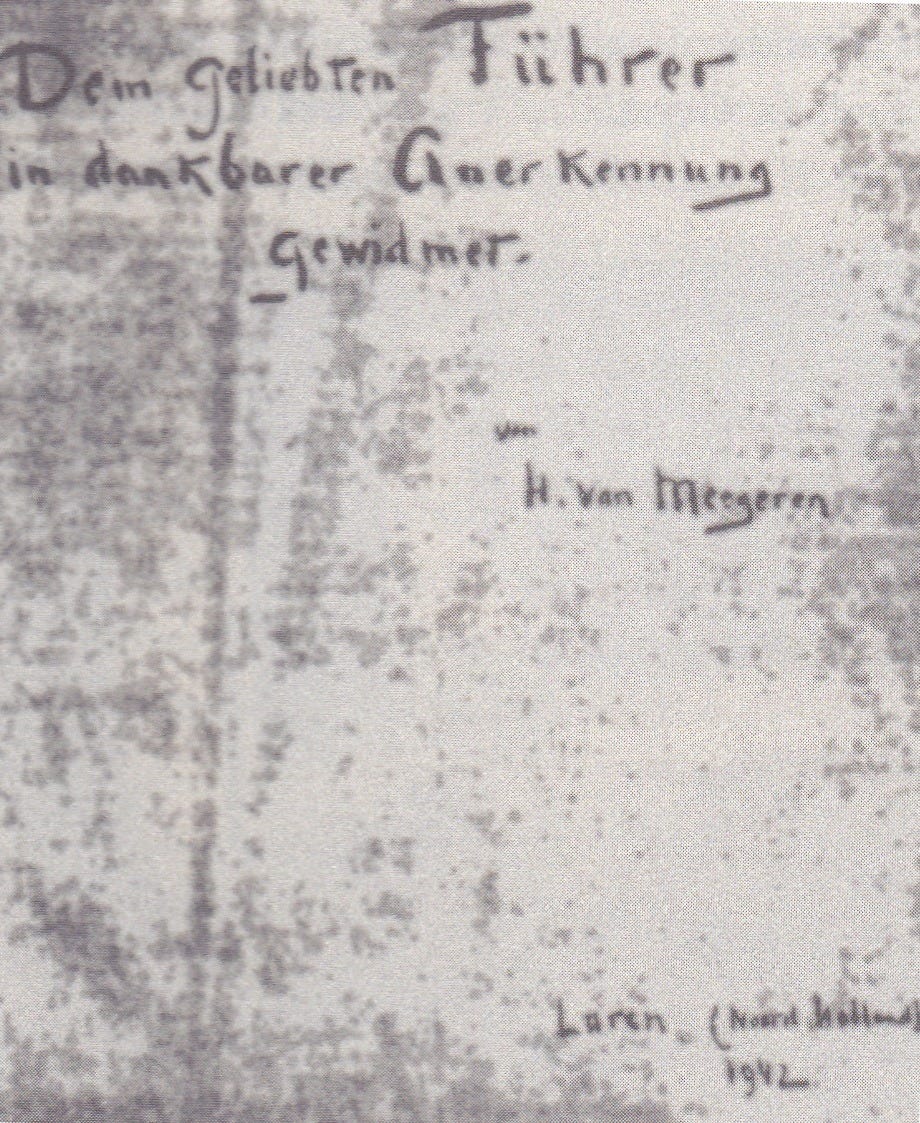 Dem geliebten Führer
in dankbarer Anerkennung
gewidmet.
von
H. van Meegeren
Laren (Noord Holland)
1942